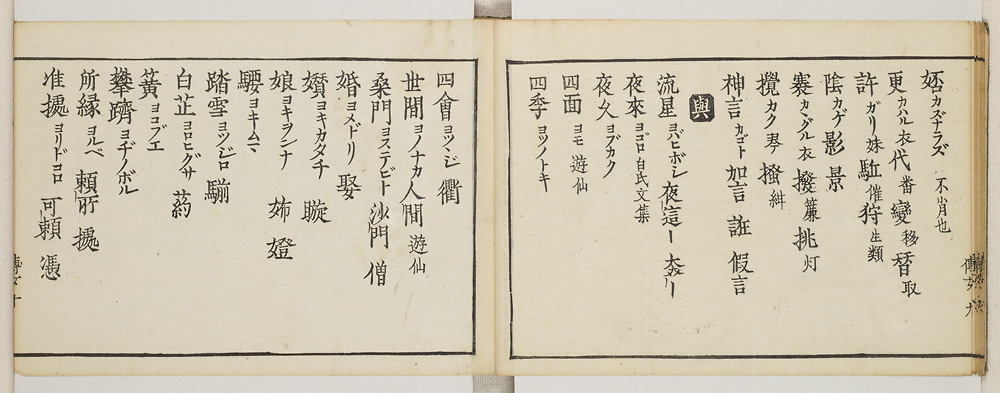 カズナラズ 不肖也
更 カハル 衣 代 番 變 移 替 取
許 ガリ 妹 駈 催 狩 生類
陰 カゲ 影 景
褰 カヽグル 衣 撥 簾 挑 灯
攪 カク 琴 掻 絣
神言 カゴト 加言 誑 假言
與
流星 ヨバヒボシ 夜這ー
夜來 ヨゴロ 白氏文集
夜久 ヨブカク
四面 ヨモ 遊仙
四季 ヨツノトキ
四會 ヨツヽジ 衢
世間 ヨノナカ 人間 遊仙
桑門 ヨステビト 沙門 僧
婚 ヨメドリ 娶
ヨキカタチ
娘 ヨキヲンナ 姉 嬁
騕 ヨキムマ
踏雪 ヨツジロ 騚
白芷 ヨロヒグサ 葯
簧 ヨコブエ
攀躋 ヨヂノボル
所縁 ヨルベ 頼所 據
准據 ヨリドヨロ 可頼 憑